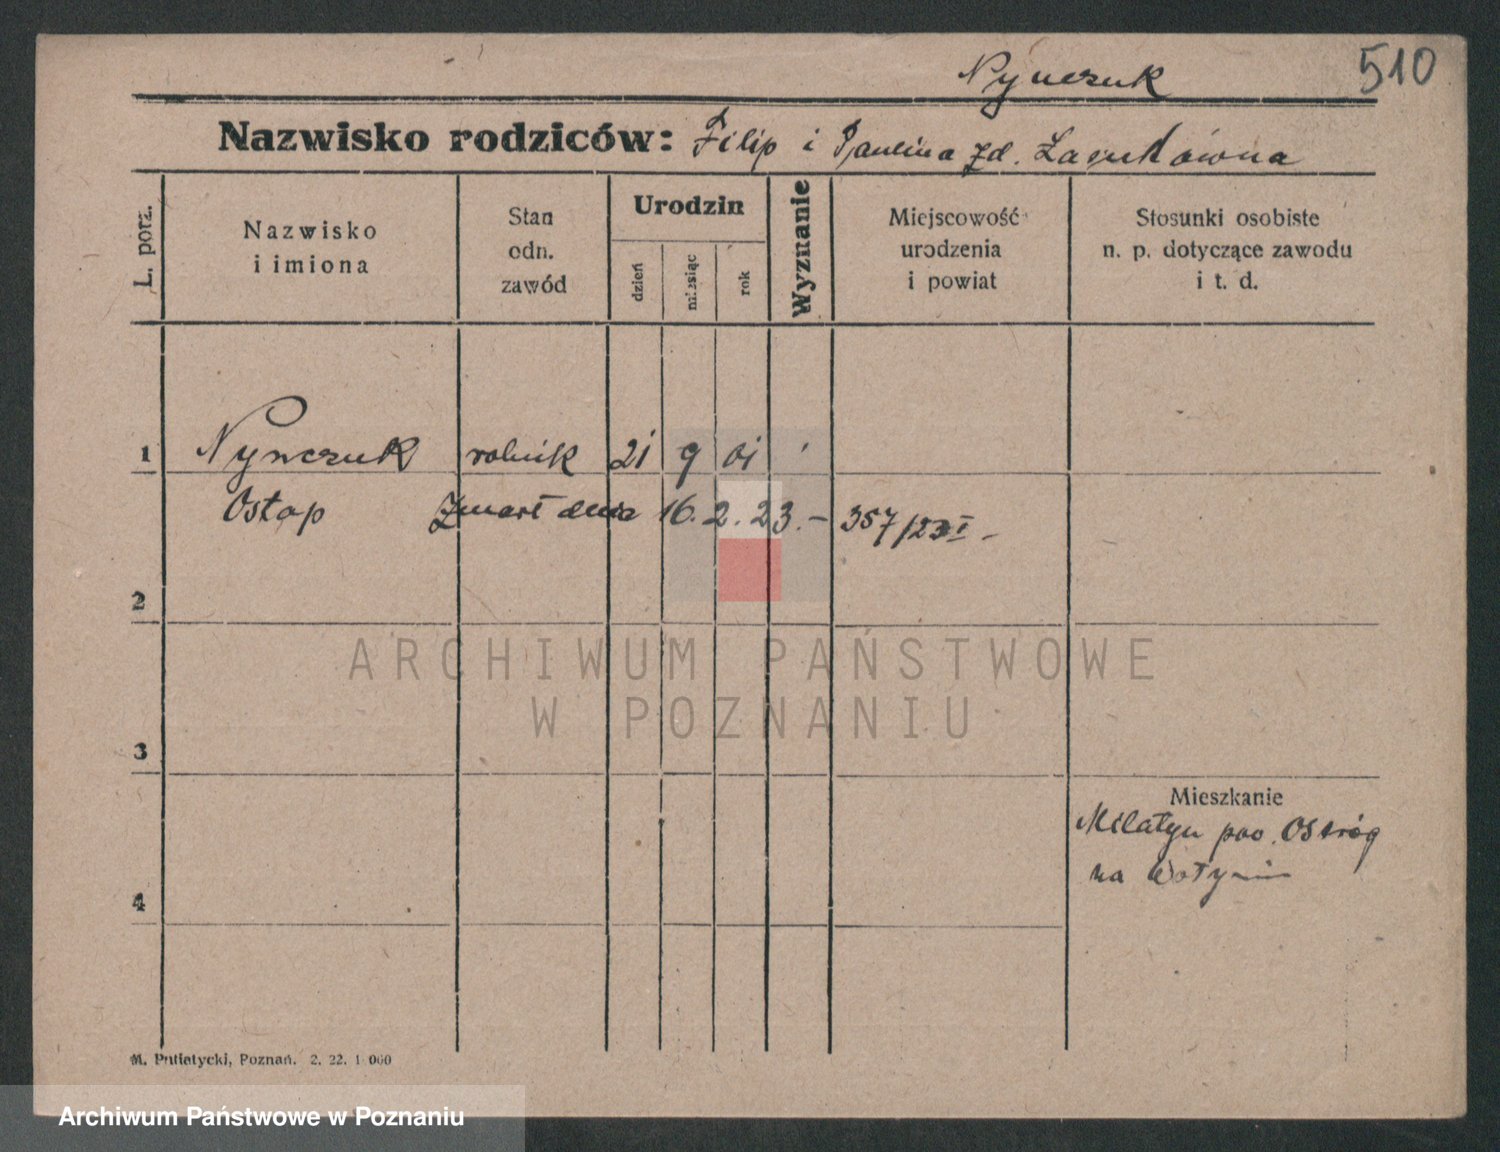 510
Nynczuk
Nazwisko rodziców: Filip i Paulina zd.
L. porz.
Nazwisko
i imiona
Stan
odn.
zawód
Urodzin
dzień
miesiąc
rok
Wyznanie
Miejscowość
urodzenia
i powiat
Stosunki osobiste
n. p. dotyczące zawodu
i t. d.
1 Nynczuk rolnik 21 9 01
Ostap Zmarł dnia 16. 2. 23. – 357/23 I –
2
ARCHIWUM PAŃSTWOWE
W POZNANIU
3
Mieszkanie
Milatyn pow. Ostróg
na Wołyniu
4
M. Putiatycki, Poznań. 2. 22. 1 000
Archiwum Państwowe w Poznaniu